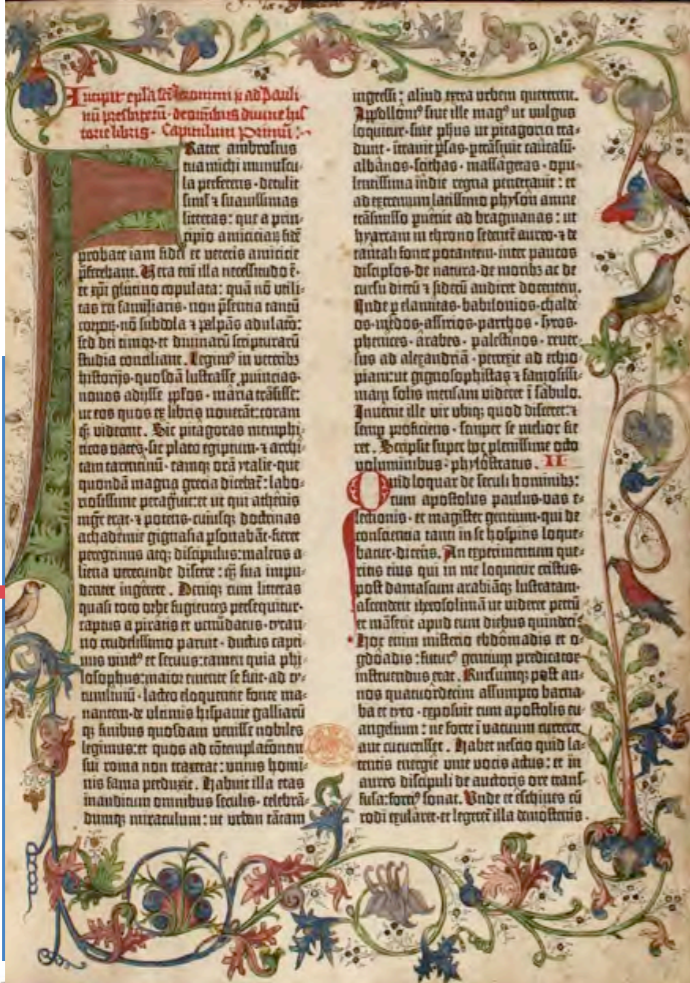 Incipit epl'a sancti Ieronimi p ad Pauli-
nū presbiterū · de omnibus divine his-
torie libris · Capitulum primum:
Frater ambrosius
tua michi munuscu-
la preferens · detulit
sim̄l ⁊ suavissimas
litteras: que a prin-
cipio amiciciaȝ fidē
probate iam fidei et veteris amicicie
p̄ferebant. Vera em̄ illa necessitudo ē·
et xp̄i glutino copulata: quā nō utili-
tas rei familiaris· non p̄sentia tantū
corpoȝ· nō subdola ⁊ palpās adulatō:
sed dei timor· et divinarū scripturarū
studia conciliant. Legimꝰ in veteribȝ
historijs· quosdā lustrasse ꝓvincias·
novos adijsse pp̄los· maria trāsisse:
ut eos quos ex libris noverāt: coram
qȝ viderent. Sic pitagoras memphi-
ticos vates· sic plato egiptum· ⁊ archi-
tam tarentinū· eamqȝ orā ytalie· que
quondā magna grecia dicebat̄: labo-
riosissime peragravit: et ut qui athenis
mgr̄ erat· ⁊ potens· cuiusqȝ doctrinas
achademie gignasia p̄sonabāt· fieret
peregrinus atqȝ discipulus: malens a-
liena verecunde discere: qȝ sua impu-
denter ingerere. Deniqȝ cum litteras
quasi toto orbe fugientes persequit̄ur·
captus a piratis et venūdatus· tyran-
no crudelissimo paruit· ductus capti-
vus vinctꝰ et servus: tamen quia phi-
losophus: maior emente se fuit· ad ty-
tumlivium· lacteo eloquentie fonte ma-
nantem· de ultimis hispanie galliarū
qȝ finibus quosdam venisse nobiles
legimus: et quos ad cōtemplacōnem
sui roma non traxerat: unius homi-
nis fama perduxit. Habuit illa etas
inauditum omnibus seculis· celebrā-
dumqȝ miraculum: ut urbem tātam
ingressi: aliud extra urbem quererent.
Apolloniꝰ sive ille magꝰ ut vulgus
loquitur· sive ph̄us ut pitagorici tra-
dunt· ītravit ꝑsas· ꝑtrāsivit caucasū·
albanos· scithas· massagetas· opu-
lentissima indie regna penetravit: et
ad extremum latissimo physon amne
trāsmisso ꝑvenit ad bragmanas: ut
hyarcam in throno sedentē aureo· ⁊ de
tantali fonte potantem· inter paucos
discip̄los· de natura· de moribȝ ac de
cursu dierū ⁊ siderū audiret docentem.
Inde ꝑ elamitas· babilonios· chalde-
os· medos· assirios· parthos· syros·
phenices· arabes· palestinos· rever-
sus ad alexandriā· perrexit ad ethio-
piam: ut gignosophistas ⁊ famosissi-
mam solis mensam videret ī sabulo.
Invenit ille vir ubiqȝ quod disceret: ⁊
semꝑ proficiens· semper se melior fie-
ret. Scripsit super hoc plenissime octo
voluminibus· phylostratus. II
Quid loquar de seculi hominibȝ:
cum apostolus paulus· vas e-
lectionis· et magister gentium· qui de
consciencia tanti in se hospitis loque-
batur· dicēs. An experimentum que-
ritis eius qui in me loquitur cristus·
post damascum arabiāqȝ lustratam·
ascenderit iherosolimā ut videret petrū
et māserit apud eum diebus quindeci·
Hoc enim misterio ebdomadis et o-
gdoadis: futurꝰ gentium predicator
instruendus erat. Rursumqȝ post an-
nos quatuordecim assumpto barna-
ba et tyto· exposuit cum apostolis eu-
angelium: ne forte ī vacuum curreret
aut cucurrisset. Habet nescio quid la-
tentis energie vive vocis actus: et in
aures discipuli de auctoris ore trans-
fusa: forciꝰ sonat. Unde et eschines cū
rodi exularet· et legeret̄ illa demostenis